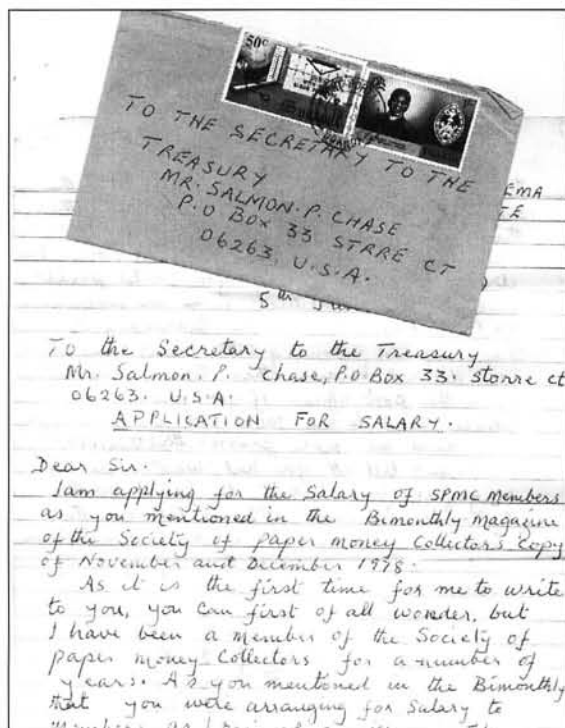 50c
TO THE SECRETARY TO THE
TREASURY
MR. SALMON. P. CHASE
P.O BOX 33 STRRE CT
06263, U.S.A.
EMA
TE
5th
To the Secretary to the Treasury
Mr. Salmon. P. Chase, P.O Box 33. Storre ct
06263. U.S.A.
APPLICATION FOR SALARY.
Dear Sir.
I am applying for the Salary of SPMC Members
as you mentioned in the Bimonthly Magazine
of the Society of paper money Collectors Copy
of November and December 1978.
As it is the first time for me to write
to you, you can first of all wonder, but
I have been a member of the Society of
paper money Collectors for a number of
years. As you mentioned in the Bimonthly
that you were arranging for Salary to